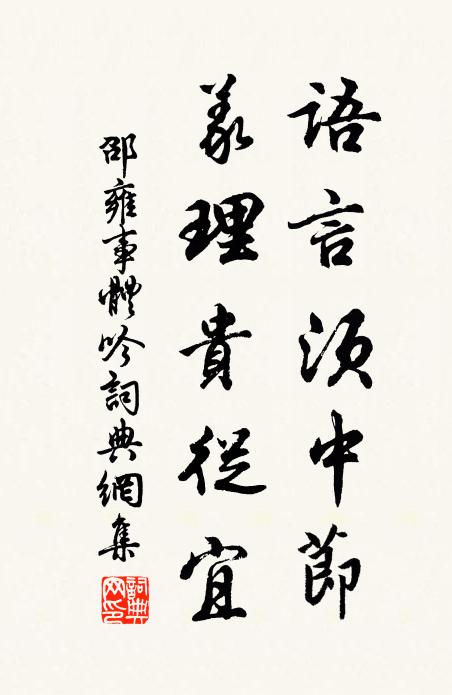 語言須中節
義理貴從宜
邵雍事體吟詞典網集
詞典网印